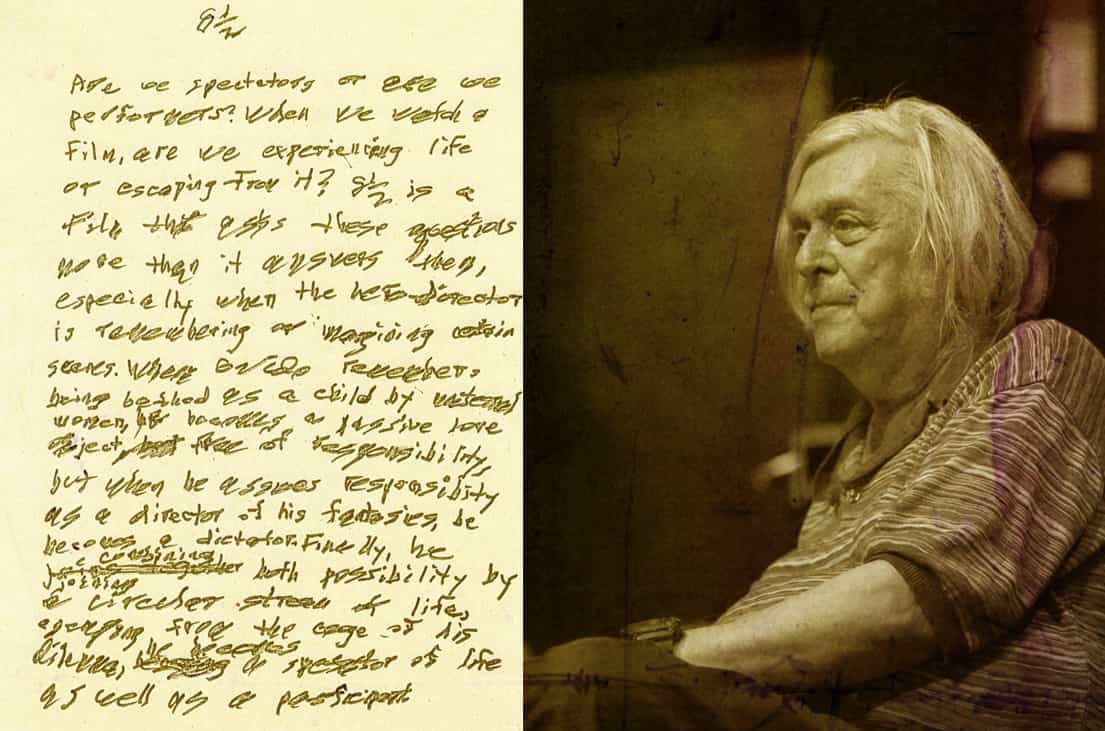 8½
Are we spectators or are we
performers? When we watch a
film, are we experiencing life
or escaping from it? 8½ is a
film that asks these questions
more than it answers them,
especially when the hero-director
is remembering or imagining certain
scenes. When Guido remembers
being bathed as a child by maternal
women, he becomes a passive love
object, free of responsibility,
but when he assumes responsibility
as a director of his fantasies, he
becomes a dictator. Finally, he
combining
joining both possibility by
a circular stream of life,
escaping from the cage of his
dilemma, he becomes a spectator of life
as well as a participant.